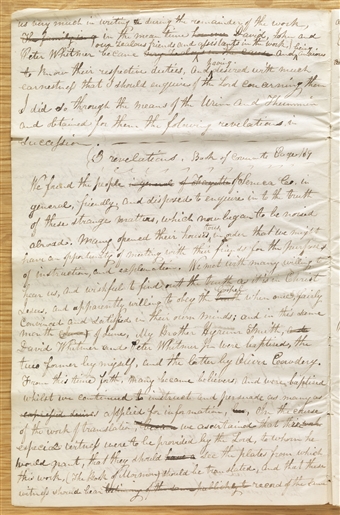 us very much in writing during the remainder of the work,
in the mean time David, John and
our zealous friends and assistants in the work
Peter Whitmer became and being anxious
to know their respective duties, and having desired with much
earnestness that I should enquire of the Lord concerning them
I did so through the means of the Urim and Thummim
and obtained for them the following revelations in
succession
3 revelations. Book of Comts Page
We found the people of Seneca Co. in
general, friendly, and disposed to enquire into the truth
of these strange matters, which now began to be noised
abroad. Many opened their houses to us in order that we might
have a oppertunity of meeting with our friends for the purposes
of instruction, and explanation. We met with many willing to
hear us, and wishful to find out the truth as it is in Christ
Jesus, and apparently willing to obey the gospel when once fairly
convinced and satisfied in their own minds; and in this same
month of June, My Brother Hyrum Smith,
David Whitmer and Peter Whitmer Jr were baptized, the
two former by myself, and the latter by Oliver Cowdery.
From this time forth, many became believers, and were baptized
whilst we continued to instruct and persuade as many as
applied for information. In the course
of the work of translation, we ascertained that three
especial witnesses were to be provided by the Lord, to whom he
would grant, that they should see the plates from which
this work (The Book of Mormon) should be translated, and that these
witness should bear record of the same